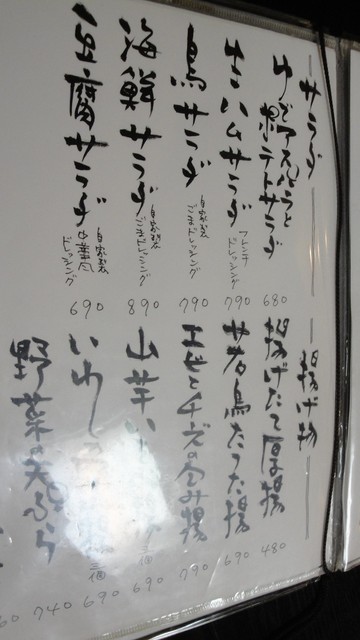 サラダ
ゆでアスパラと
ポテトサラダ 680
生ハムサラダ フレンチドレッシング 790
鳥サラダ 自家製ごまドレッシング 790
海鮮サラダ 自家製ごまドレッシング 890
豆腐サラダ 自家製中華風ドレッシング 690
揚げ物
揚げたて厚揚 480
若鳥たつた揚 690
エビとチーズの包み揚 790
山芋い 三個 690
いわし 三個 690
野菜の天ぷら 740
60